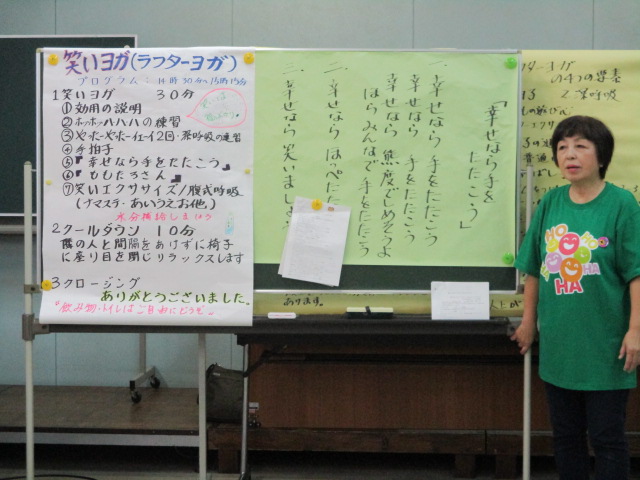 笑いヨガ(ラフターヨガ)
プログラム:14時30分〜15時15分
1笑いヨガ 30分
①効用の説明
②ホッホッハハハの練習
③やったーやったーイエーイ2回・深呼吸の連習
④手拍子
⑤『幸せなら手をたたこう』
⑥『ももたろさん』
⑦笑いエクササイズ/腹式呼吸
(ナマステ・あいうえお他)
水分補給しましょう
2クールダウン 10分
隣の人と間隔をあけずに椅子
に座り目を閉じリラックスします
3クロージング
ありがとうございました。
飲み物・トイレはご自由にどうぞ
「幸せなら手を
たたこう」
一、幸せなら 手をたたこう
幸せなら 手をたたこう
幸せなら 態度でしめそうよ
ほら みんなで手をたたこう
二、幸せなら ほっぺたた
三、幸せなら 笑いましょ
ターヨガ
の4つの要素
深呼吸
あります。
HO
HO
HA
HA